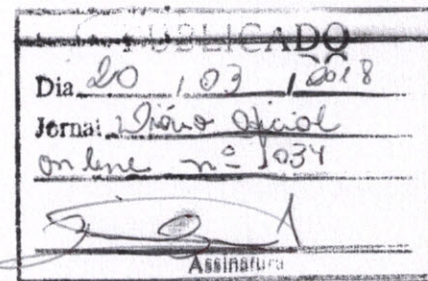 PUBLICADO
Dia 20 / 03 / 2018
Jornal Diário Oficial
on line nº 1034
Assinatura